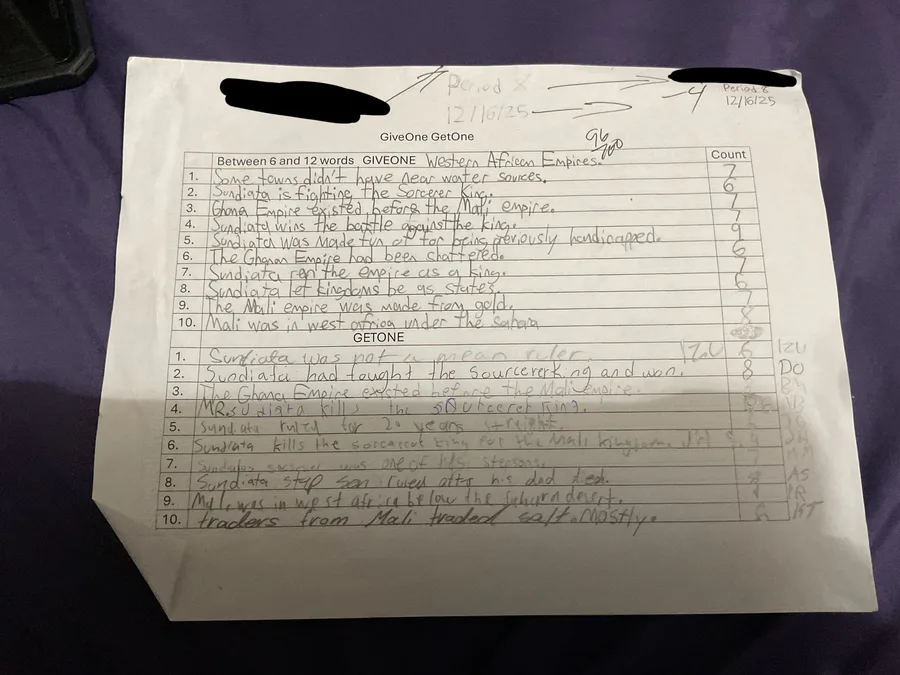 Period 8
12/16/25
-4
Period 8
12/16/25
GiveOne GetOne
96/100
Between 6 and 12 words GIVEONE Western African Empires. Count
1. Some towns didn't have near water sources. 7
2. Sundiata is fighting the Sorcerer King. 6
3. Ghana Empire existed before the Mali empire. 7
4. Sundiata wins the battle against the king. 7
5. Sundiata was made fun of for being previously handicapped. 9
6. The Ghanan Empire had been shattered. 6
7. Sundiata ran the empire as a king. 7
8. Sundiata let kingdoms be as states. 6
9. The Mali empire was made from gold. 7
10. Mali was in west africa under the sahara 8
GETONE
1. Sundiata was not a mean ruler. IZU 6 IZU
2. Sundiata had fought the sourcererking and won. 8 DO
3. The Ghana Empire existed before the Mali empire.
4. MR.sudiata kills the sourcerer king.
5. Sundiata ruled for 20 years straight.
6. Sundiata kills the king for the Mali kingdom. 9
7. was one of his stepsons. 7 MM
8. Sundiata step son ruled after his dad died. 8 AS
9. Mali was in west africa below the desert. IR
10. traders from Mali traded salt mostly. 6 KT